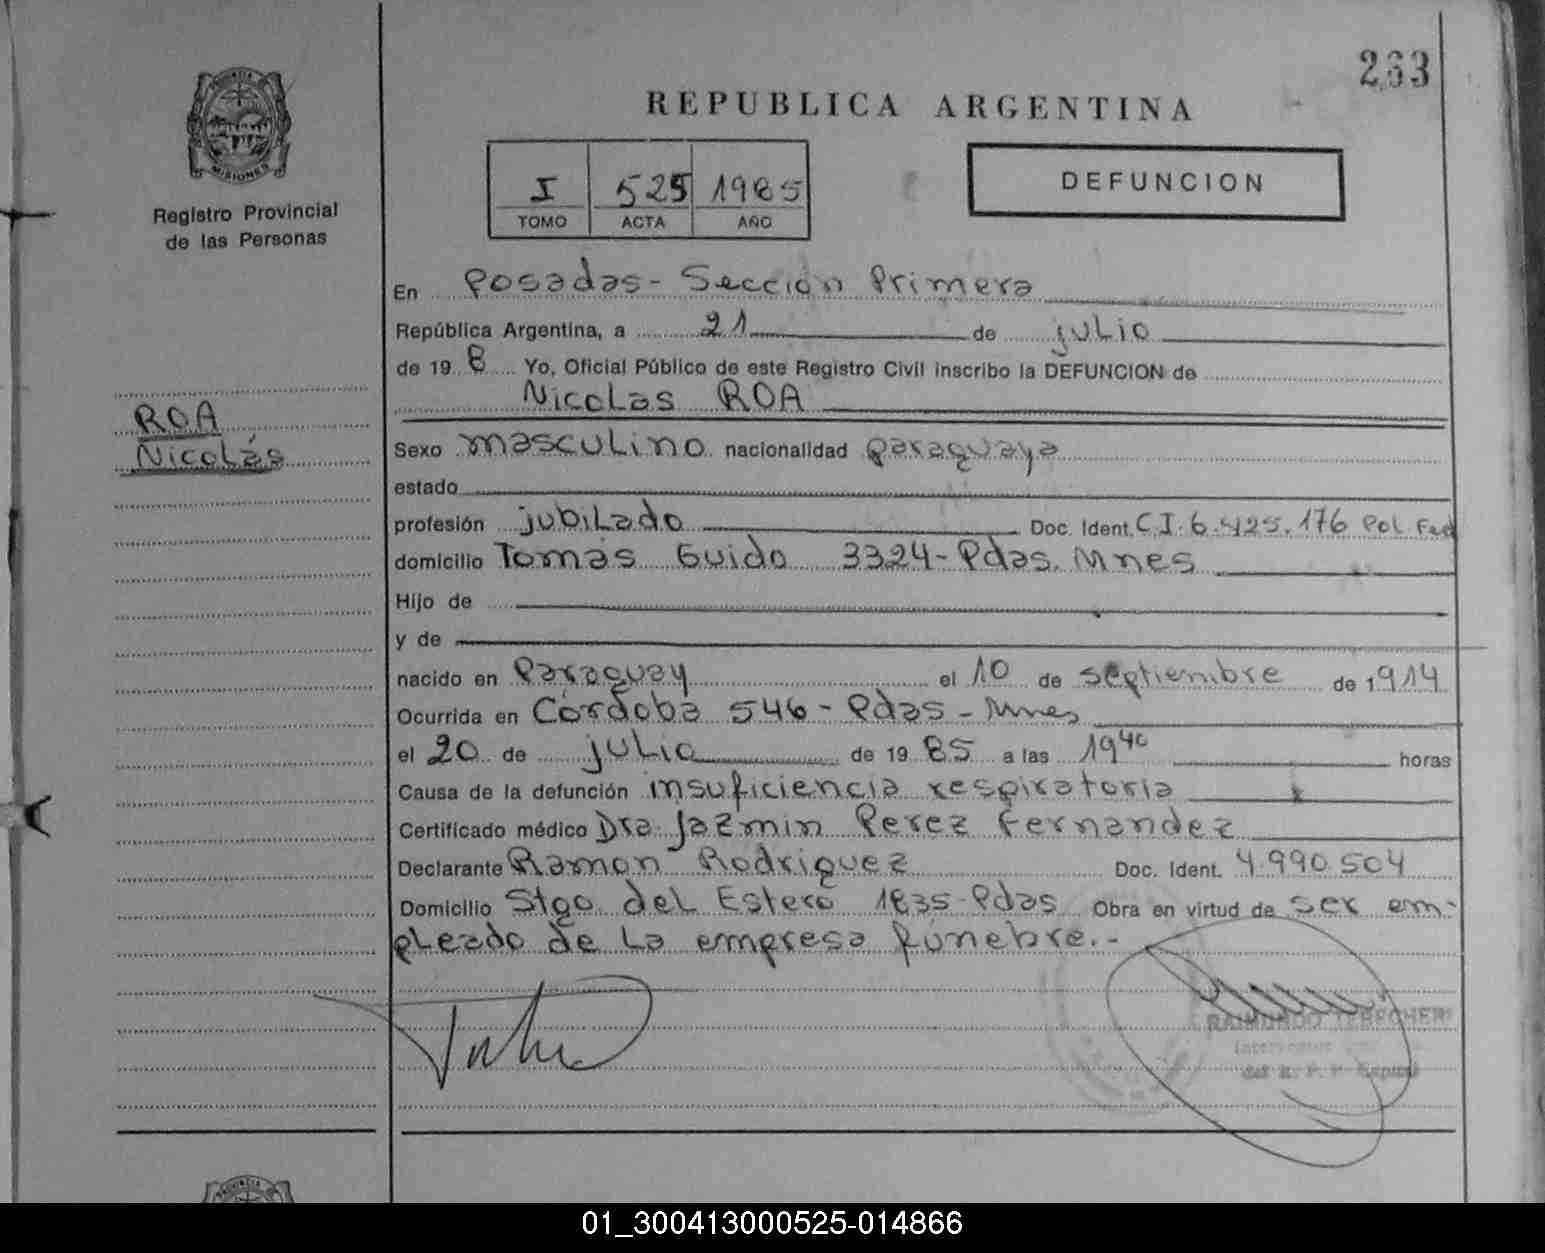 263
REPUBLICA ARGENTINA
PROVINCIA DE
MISIONES
Registro Provincial
de las Personas
I 525 1985
TOMO ACTA AÑO
DEFUNCION
En Posadas - Sección Primera
República Argentina, a 21 de julio
de 19 8 Yo, Oficial Público de este Registro Civil inscribo la DEFUNCION de
Nicolas ROA
ROA
Nicolás
Sexo masculino nacionalidad paraguaya
estado
profesión jubilado Doc. Ident. C.I. 6.425.176 Pol. Fed
domicilio Tomás Guido 3324 - Pdas. Mnes
Hijo de
y de
nacido en Paraguay el 10 de septiembre de 1914
Ocurrida en Córdoba 546 - Pdas - Mnes
el 20 de julio de 19 85 a las 19 40 horas
Causa de la defunción insuficiencia respiratoria
Certificado médico Dra. Jazmin Perez Fernandez
Declarante Ramon Rodriguez Doc. Ident. 4.990.504
Domicilio Stgo. del Estero 1835 - Pdas Obra en virtud de ser em-
pleado de la empresa fúnebre.-
RAIMUNDO TEBECHER
del R. P. P. Capital
01_300413000525-014866